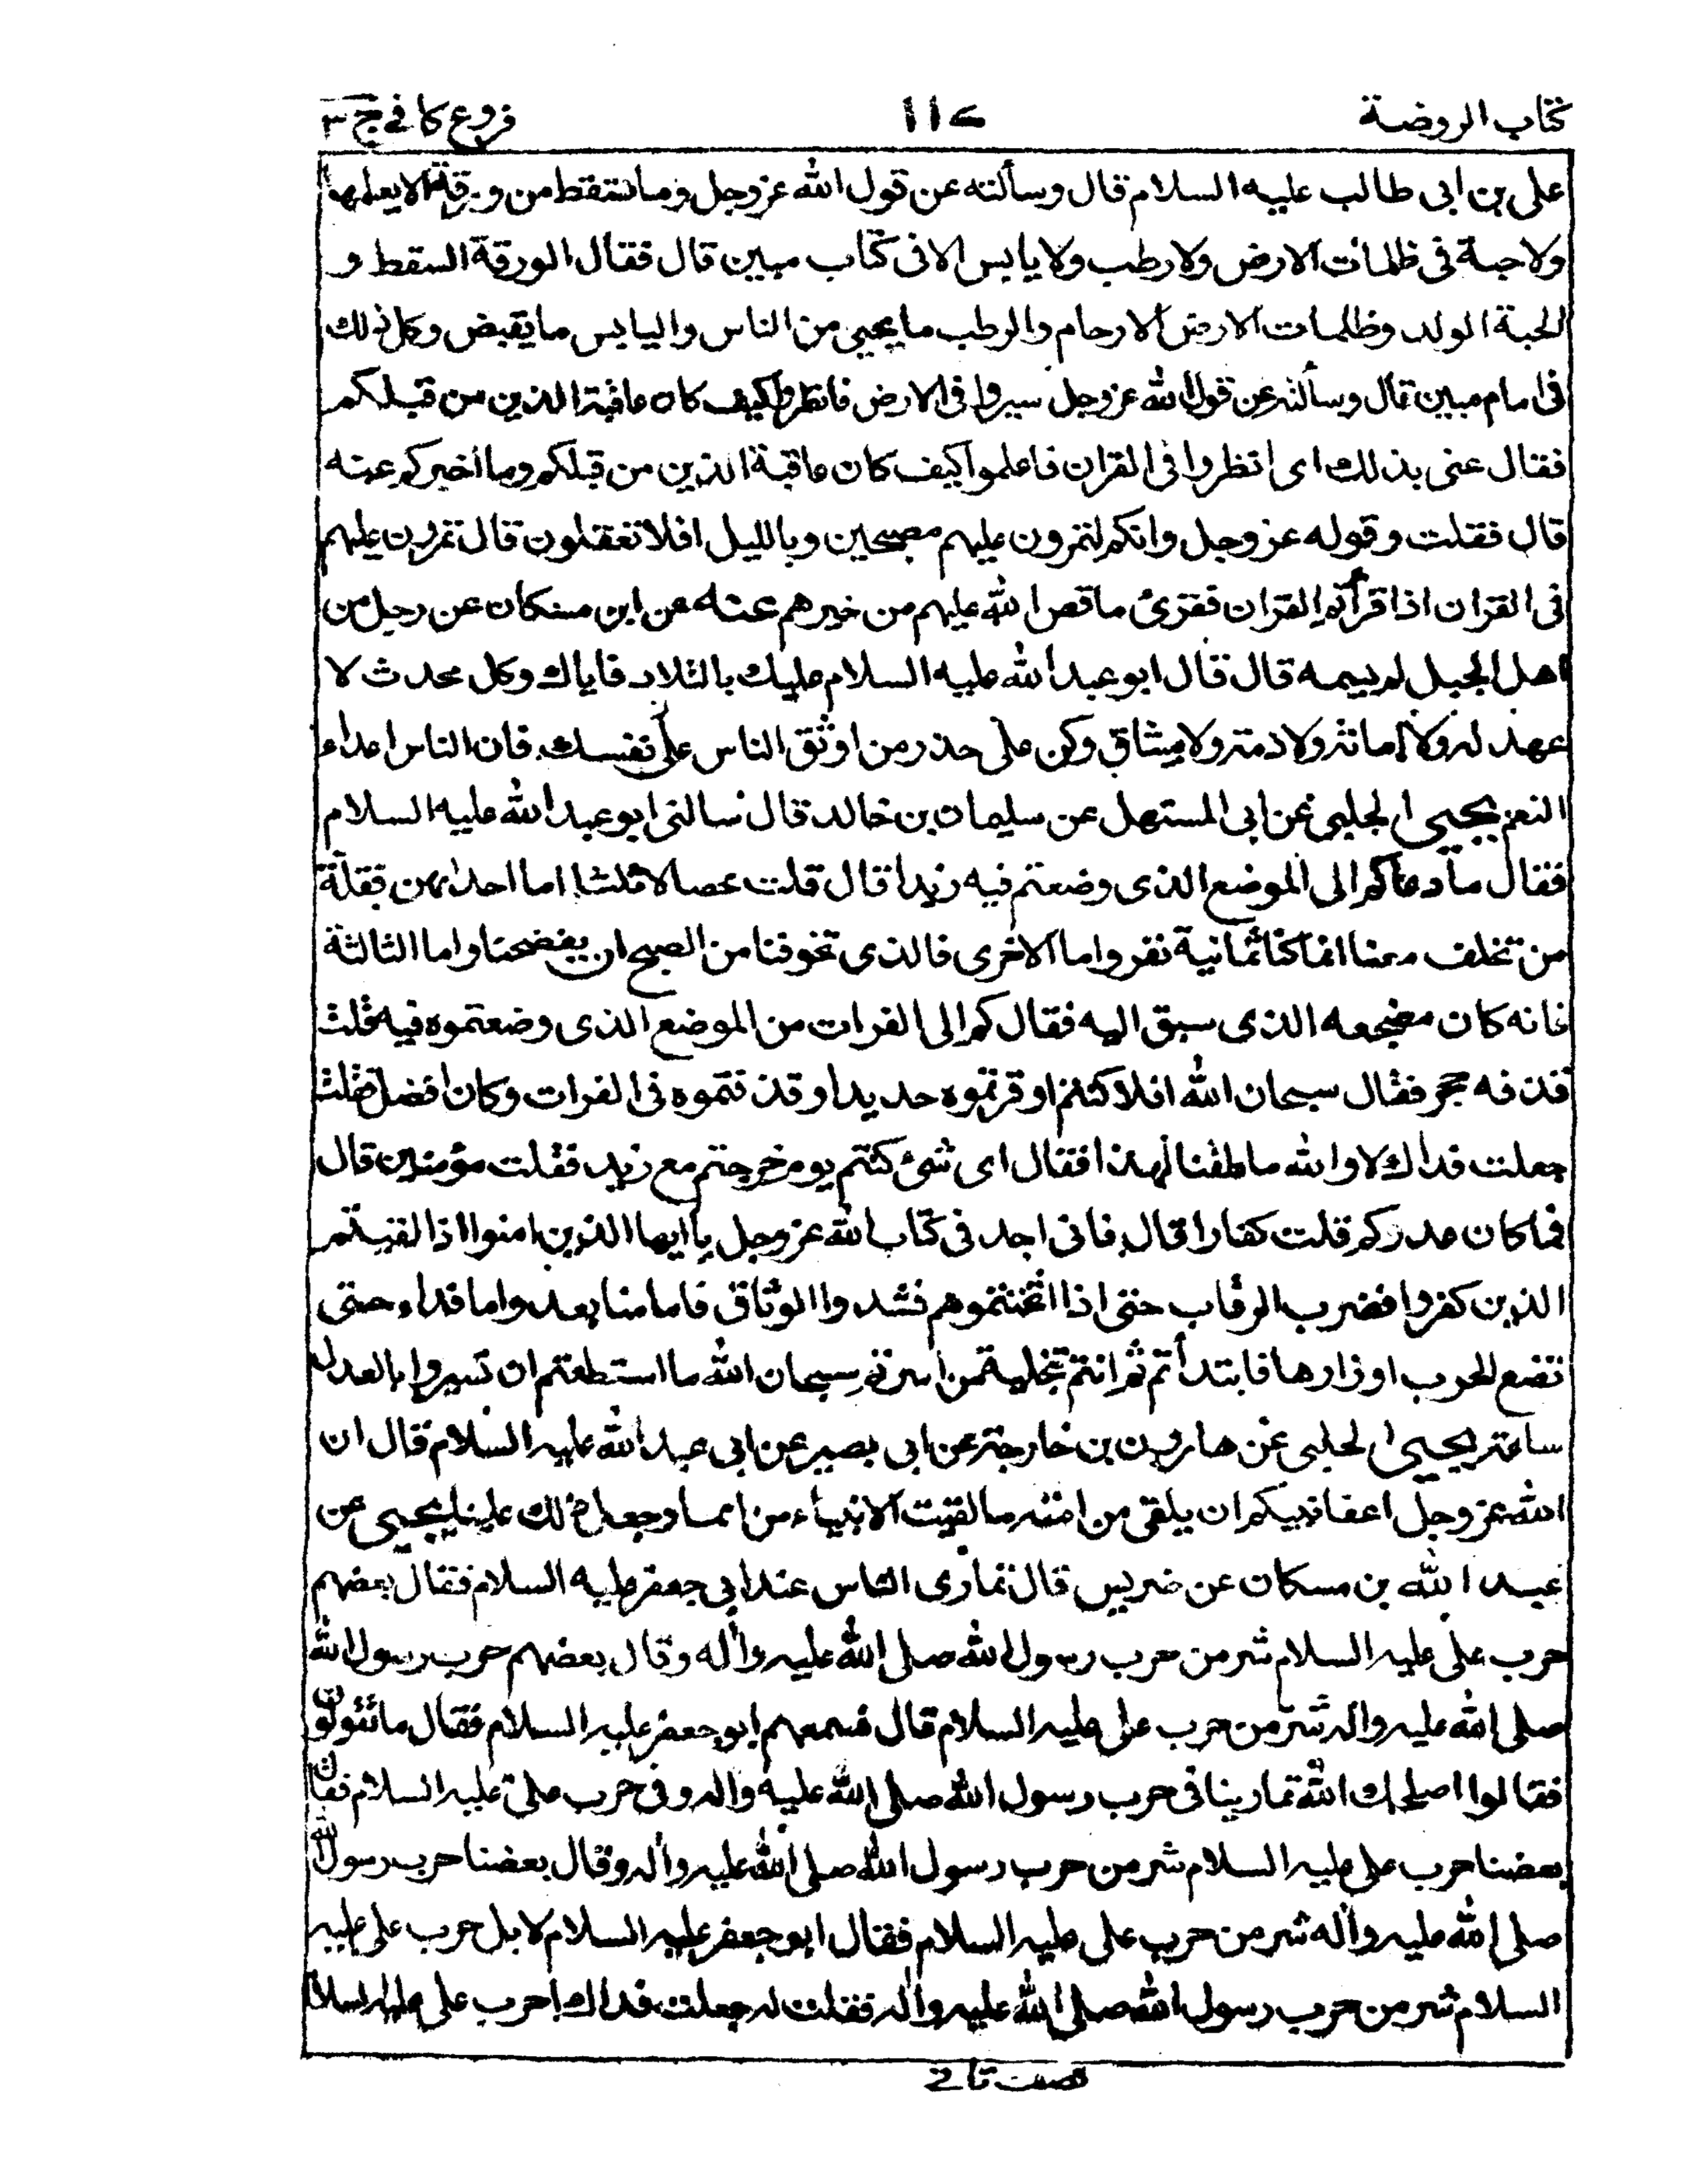 كتاب الروضة ١١٧ فروع كافي ج ٣
علي بن ابي طالب عليه السلام قال وسألته عن قول الله عز وجل وما تسقط من ورقة الا يعلمها
ولا حبة في ظلمات الارض ولا رطب ولا يابس الا في كتاب مبين قال فقال الورقة السقط و
الحبة الولد وظلمات الارض الارحام والرطب ما يحيي من الناس واليابس ما يقبض وكل ذلك
في امام مبين قال وسألته عن قول الله عز وجل سيروا في الارض فانظروا كيف كان عاقبة الذين من قبلكم
فقال عنى بذلك اى انظروا في القران فاعلموا كيف كان عاقبة الذين من قبلكم وما اخبركم عنه
قال فقلت وقوله عز وجل وانكم لتمرون عليهم مصبحين وبالليل افلا تعقلون قال تمرون عليهم
في القران اذا قرأتم القران فقرئ ما قص الله عليهم من خبرهم عنه عن ابن مسكان عن رجل من
اهل الجبل لم يسمه قال قال ابو عبد الله عليه السلام عليك بالتلاد فاياك وكل محدث لا
عهد له ولا امانة ولا ذمة ولا ميثاق وكن على حذر من اوثق الناس على نفسك فان الناس اعداء
النعم يحيى الحلبي عن ابي المستهل عن سليمان بن خالد قال سالني ابو عبد الله عليه السلام
فقال ما دعاكم الى الموضع الذى وضعتم فيه زيدا قال قلت خصالا ثلثا اما احداهن فقلة
من تخلف معنا انما كنا ثمانية نفر واما الاخرى فالذى تخوفنا من الصبح ان يفضحنا واما الثالثة
فانه كان مضجعه الذى سبق اليه فقال كم الى الفرات من الموضع الذى وضعتموه فيه قلت
قذفة حجر فقال سبحان الله افلا كنتم اوقرتموه حديدا وقذفتموه في الفرات وكان افضل فقلت
جعلت فداك لا والله ما طقنا لهذا فقال اى شئ كنتم يوم خرجتم مع زيد فقلت مؤمنين قال
فما كان عدوكم قلت كفارا قال فاني اجد في كتاب الله عز وجل يا ايها الذين امنوا اذا لقيتم
الذين كفروا فضرب الرقاب حتى اذا اثخنتموهم فشدوا الوثاق فاما منا بعد واما فداء حتى
تضع الحرب اوزارها فابتدأتم ثم انتم بتخلية من اسرتم سبحان الله ما استطعتم ان تسيروا بالعدل
ساعة يحيى الحلبي عن هارون بن خارجة عن ابي بصير عن ابي عبد الله عليه السلام قال ان
الله عز وجل اعفا نبيكم ان يلقى من امته ما لقيت الانبياء من اممها وجعل ذلك علينا يحيى عن
عبد الله بن مسكان عن ضريس قال تمارى الناس عند ابي جعفر عليه السلام فقال بعضهم
حرب علي عليه السلام شر من حرب رسول الله صلى الله عليه وآله وقال بعضهم حرب رسول الله
صلى الله عليه واله شر من حرب علي عليه السلام قال فسمعهم ابو جعفر عليه السلام فقال ما تقولون
فقالوا اصلحك الله تمارينا في حرب رسول الله صلى الله عليه واله وفي حرب علي عليه السلام فقال
بعضنا حرب علي عليه السلام شر من حرب رسول الله صلى الله عليه واله وقال بعضنا حرب رسول الله
صلى الله عليه وآله شر من حرب علي عليه السلام فقال ابو جعفر عليه السلام لا بل حرب علي عليه
السلام شر من حرب رسول الله صلى الله عليه واله فقلت له جعلت فداك احرب علي عليه السلام